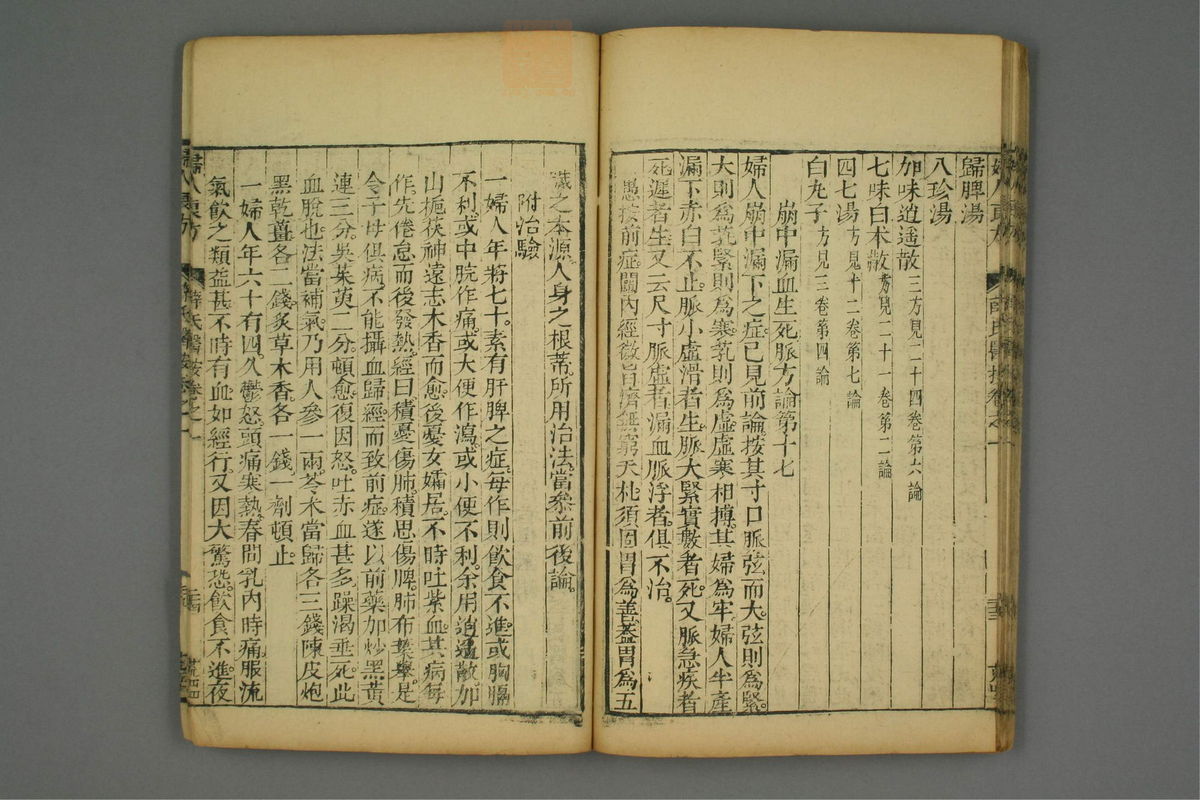 歸脾湯
八珍湯
加味逍遥散 三方見二十四卷第六論
七味白术散 方見二十一卷第二論
四七湯 方見十二卷第七論
白丸子 方見三卷第四論
崩中漏血生死脈方論第十七
婦人崩中漏下之症已見前論按其寸口脈弦而大弦則為緊
大則為芤緊則為寒芤則為虛虛寒相搏其婦為牢婦人半產
漏下赤白不止脈小虛滑者生脈大緊實數者死又脈急疾者
死遲者生又云尺寸脈虛者漏血脈浮者俱不治
愚按前症闗內經微旨濟無窮天札須固胃為善蓋胃為五
臟之本源人身之根蒂所用治法當叅前後論
附治驗
一婦人年將七十素有肝脾之症每作則飲食不進或胸膈
不利或中脘作痛或大便作瀉或小便不利余用逍遥散加
山梔茯神遠志木香而愈後憂女孀居不時吐紫血其病每
作先倦怠而後發熱經曰積憂傷肺積思傷脾肺布葉舉是
令子母俱病不能攝血歸經而致前症遂以前藥加炒黑黄
連三分吳茱萸二分頓愈復因怒吐赤血甚多躁渴垂死此
血脫也法當補氣乃用人參一兩苓术當歸各三錢陳皮炮
黑乾薑各二錢炙草木香各一錢一劑頓止
一婦人年六十有四久鬱怒頭痛寒熱春間乳內時痛服流
氣飲之類益甚不時有血如經行又因大驚恐飲食不進夜
婦人良方
薛氏醫按卷之一